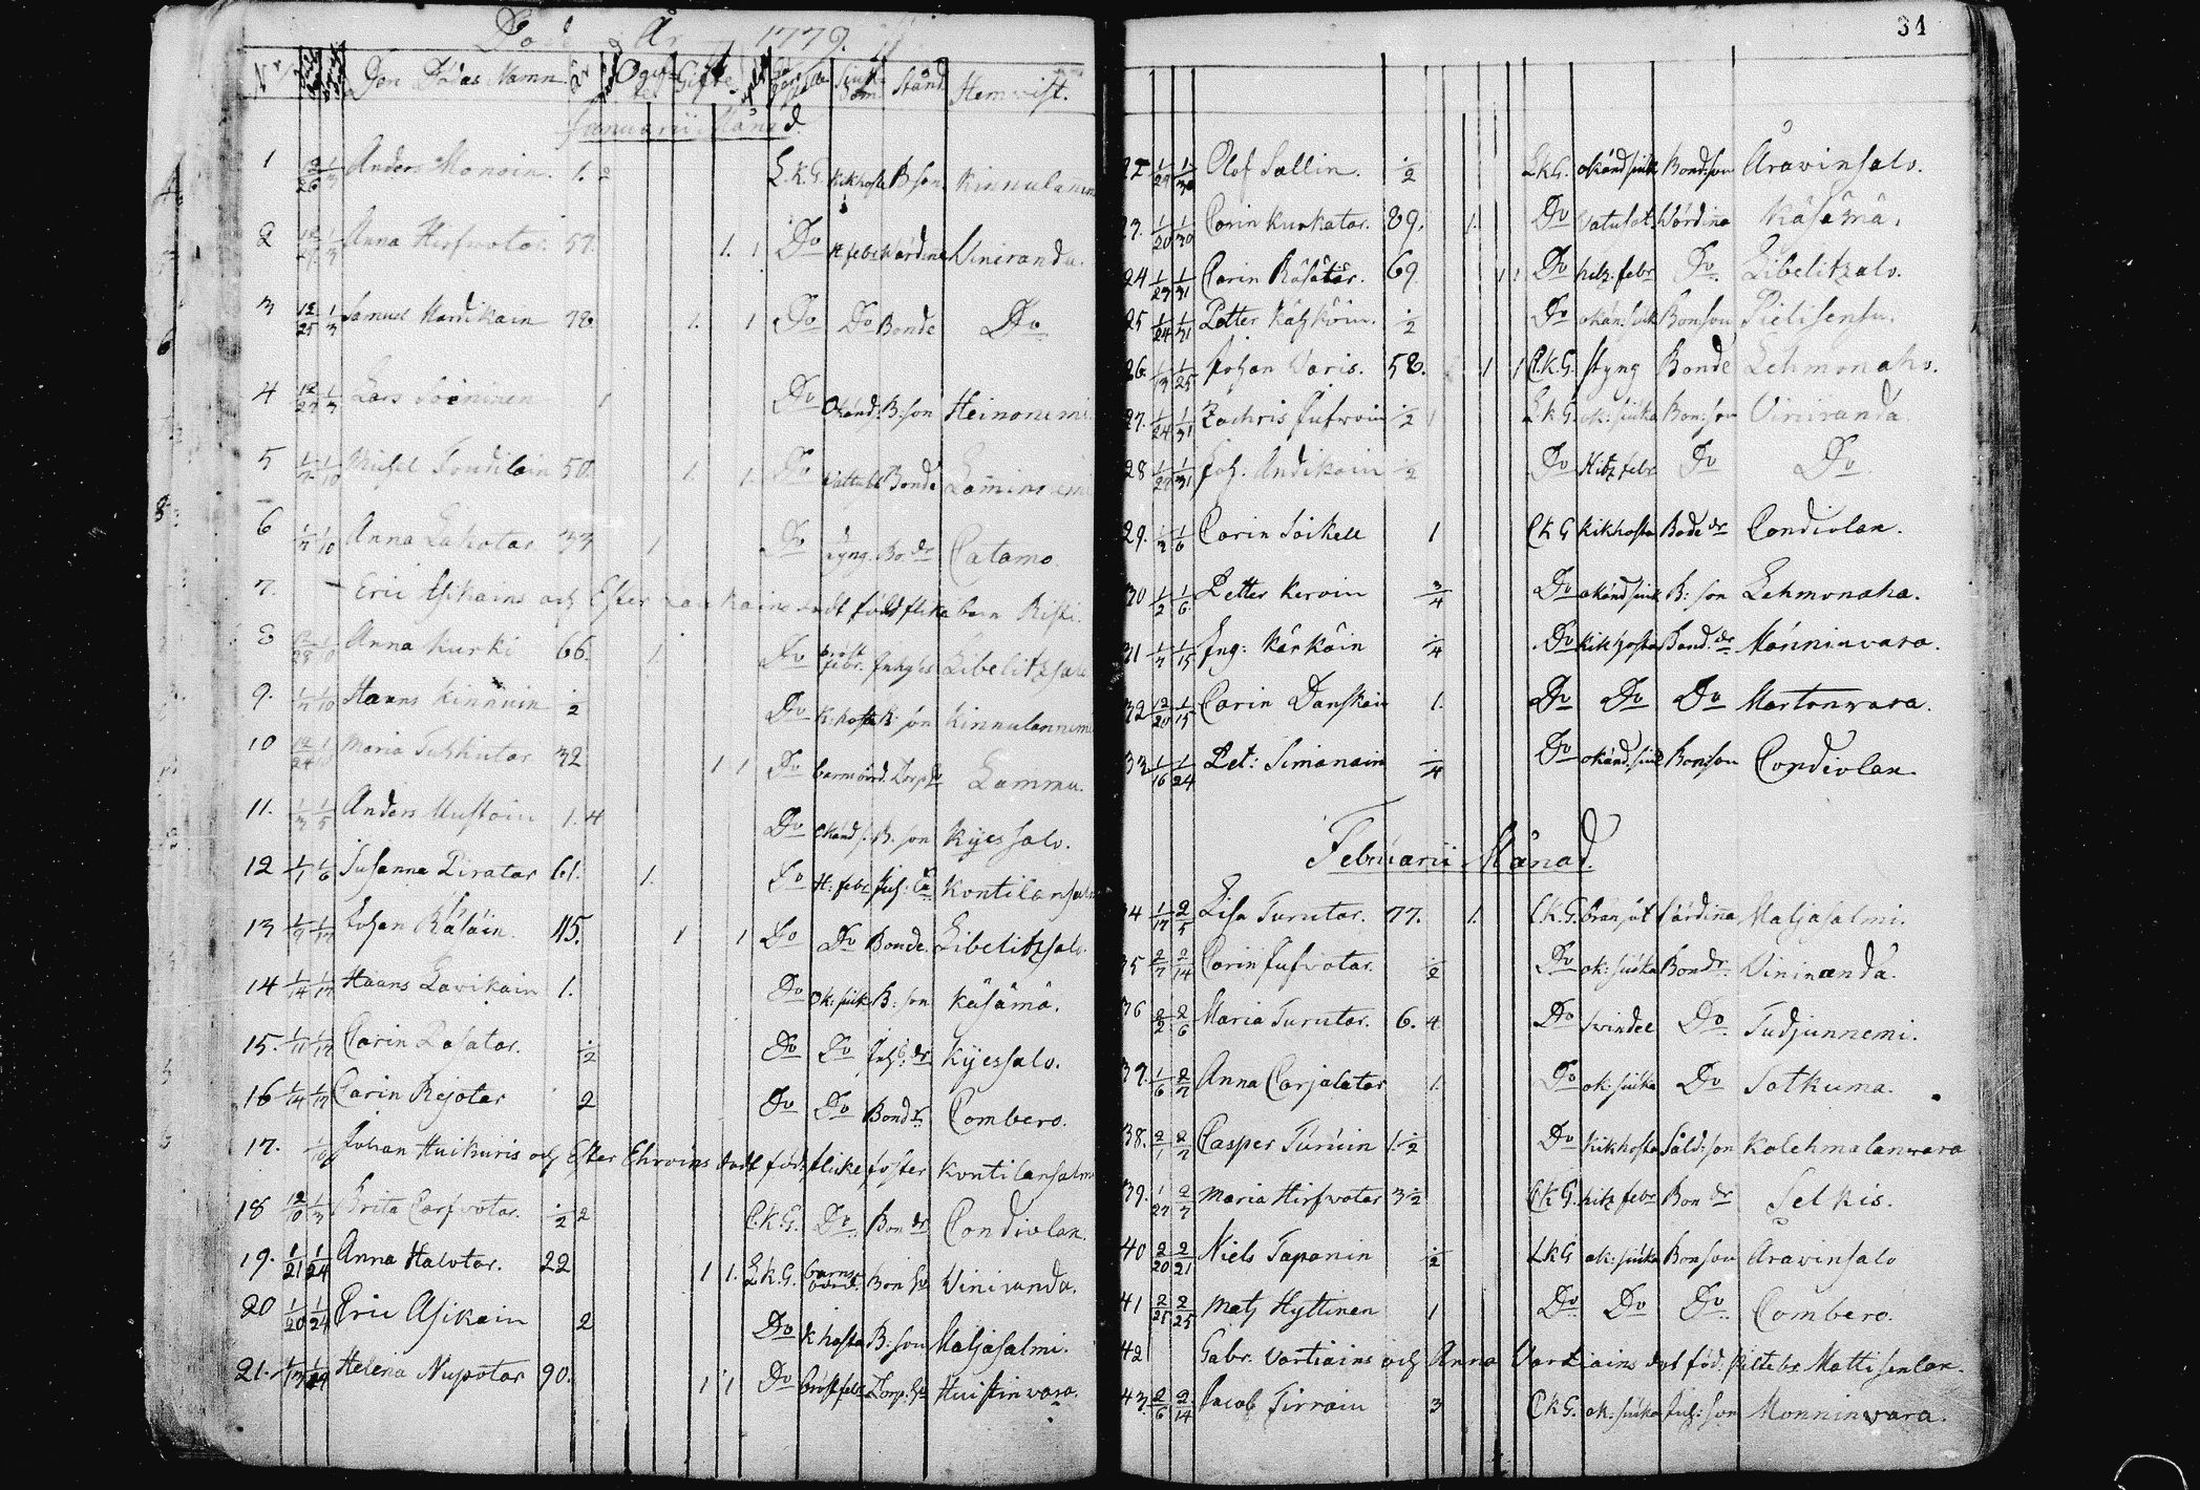 Död År 1779.
Nr Den Dödas Namn År Ogifte Gifte Sjuk Dom Stånd Hemvist.
Januarii Månad.
1 12/26 1/3 Anders Monoin. 1. 2 L.k.G. kikhosta B son kinnulanniem
2 1/3 Anna Hirfwotar. 57. 1. 1 Do H febr Wärdina Viniranda.
3 12/25 1/3 Samuel Hardikain 78 1. 1 Do Do Bonde Do
4 12/27 1/3 Lars Soininen 1 Do Okänd: B: son Heinonemi
5 1/10 Michel Toudilain 50. 1. 1. Do Bonde Laminniemi
6 1/10 Anna Lakotar 33 1 Do styng. Bo. dr Catamo.
7. Eric Asikains och Ester dödt född flicka barn Riski.
8 12/28 1/10 Anna kurki 66. 1. Do bröst febr. Inhyses Libelitzsalo
9. 1/10 Haans kinnuin 1/2 Do k: hosta B: son kinnulanniemi
10 12/24 Maria Tuhkutar 32 1 1 Do barnsbörd. Torp: Lammu.
11. 1/3 1/5 Anders Mustoin 1. 4 Do Okänd s. B. son Kyessalo.
12 1/1 1/6 Susanna Piratar 61. 1. Do H: febr Kontilansalmi
13 1/17 Johan Räsäin 45. 1 1 Do Do Bonde. Libelitzsalo.
14 1/14 1/17 Haans Lavikain 1. Do Ok: siuk B: son käsämä.
15. 1/11 1/17 Carin Lasatar. 1/2 Do Do Inh: dr kyessalo.
16 1/14 1/17 Carin Rejotar 2 Do Do Bondr. Combero.
17. 1/10 Johan Huikuris och Ester Ehroins dödt föd: flicke foster kontilansalm
18 12/0 1/3 Brita Carfvotar. 1/2 2 C.k.G. Do Bon dr Condiolax.
19. 1/21 1/24 Anna Halvotar. 22 1 1. L.k.G. barns börd. Bon hu Viniranda.
20 1/20 1/24 Eric Asikain 2 Do k hosta B: son Maljasalmi.
21. 1/13 1/24 Helena Nupotar 90. 1 1 Do bröstfebr Torp. hu Huistinvara.
34
22 1/29 1/30 Olof Sallin. 1/2 L.k.G. okänd siuk Bond: son Åravinsalo.
23. 1/20 1/30 Carin kurkatar. 89. 1. Do Vatusot. Wärdina Käsämä.
24 1/23 1/31 Carin Räsätär. 69 1 1 Do hetz. febr Do Libelitzalo.
25 1/24 1/31 Petter kähköin. 1/2 Do okän: siuk Bonson Pielisensu.
26 1/13 1/25 Johan Varis. 58. 1 1 C.k.G. styng Bonde Lehmonaho.
27. 1/24 1/31 Zachris Jufwoin 1/2 L k G. ok: siuka Bon: son Viniranda
28 1/27 1/31 Joh: Andikain 1/2 Do Hitz febr Do Do
29. 1/2 1/6 Carin Soikele 1 C k G kikhosta Bode dr Condiolax.
30 1/2 1/6. Petter kervin 3/4 Do okänd siuk B: son Lehmonaho.
31 1/7 1/15 Ing: kärkäin 1/4 Do kikhosta Bond. dr Mönninvara.
32 12/20 1/15 Carin Danskain 1. Do Do Do Martonvara.
33 1/16 1/24 Pet: Simonain 1/4 Do okänd. siuk Bonson Condiolax.
Februarii Månad.
34 1/17 2/5 Lisa Turutar. 77. 1. C.k.G. bränsot Värdinna Maljasalmi.
35 2/7 2/14 Carin Jufvotar. 1/2 Do ok: siuka Bondr. Vininanda.
36 2/2 2/6 Maria Turutar. 6. 4 Do Svindel Do Tudjunnemi.
37. 1/6 2/7 Anna Carjalatar 1. Do ok: siuka Do Sotkuma.
38. 2/1 2/7 Casper Turuin 1. 1/2 Do kikhosta Sold: son kolehmalanvara
39. 1/27 2/7 Maria Hirfwotar 3 1/2 C k G. hitz febr Bon dr Selkis.
40 2/20 2/21 Niels Tapanin 1/2 L k G ok: siuka Bonson Åravinsalo
41 2/21 2/25 Mats Hyttinen 1 Do Do Do Combero.
42 Gabr. Vartiains och Anna Vartiains död föd: Piltebr. Mattisenlax.
43. 2/6 2/14 Jacob Tirroin 3 C k G. ok: siuka Inh: son Monninvara.